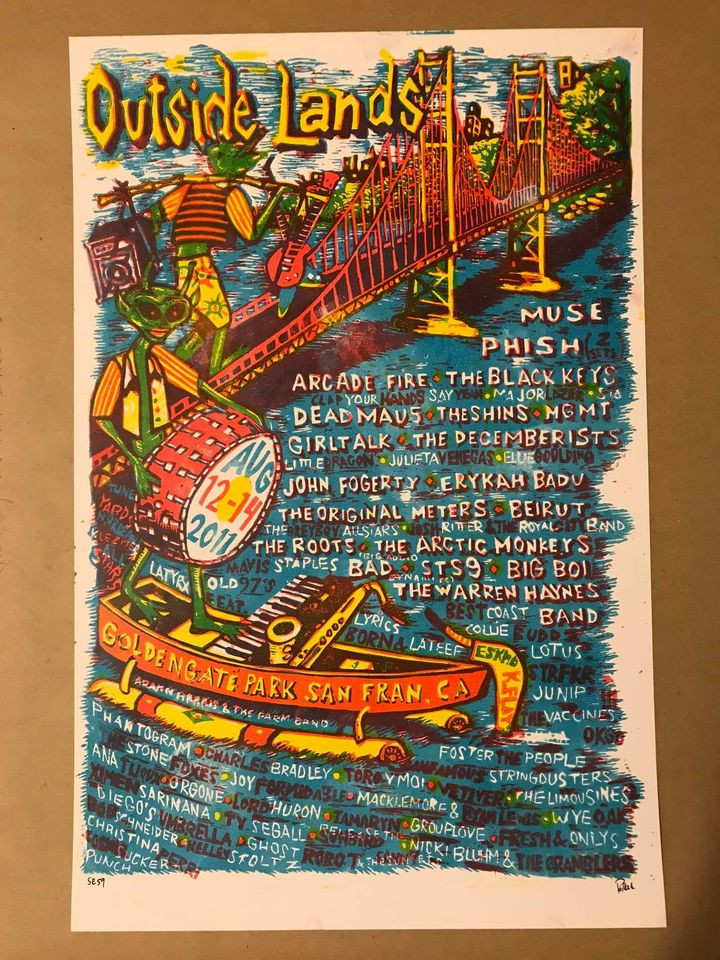 Outside Lands
MUSE
PHISH (2 SETS)
ARCADE FIRE • THE BLACK KEYS
CLAP YOUR HANDS SAY YEAH • MAJOR LAZER • SIA
DEADMAU5 • THE SHINS • MGMT
GIRL TALK • THE DECEMBERISTS
LITTLE DRAGON • JULIETA VENEGAS • ELLIE GOULDING
JOHN FOGERTY • ERYKAH BADU
THE ORIGINAL METERS • BEIRUT
THE GREYBOY ALLSTARS • JOSH RITTER & THE ROYAL CITY BAND
THE ROOTS • THE ARCTIC MONKEYS
MAVIS STAPLES BIG AUDIO DYNAMITE BAD • STS9 • BIG BOI
THE WARREN HAYNES
BAND
BEST COAST
AUG
12-14
2011
TUNE
YARDS
KLEZMER
ALL
STARS
LATYRX
OLD 97'S
BEAT
LYRICS
BORN
LATEEF
COLLIE BUDDZ
LOTUS
ESKMO
K.FLAY
STRFKR
JUNIP
THE VACCINES
OKGO
GOLDEN GATE PARK SAN FRAN. CA
& THE FARM BAND
PHANTOGRAM • CHARLES BRADLEY • TORO Y MOI • INFAMOUS STRINGDUSTERS
FOSTER THE PEOPLE
THE STONE FOXES • JOY FORMIDABLE • MACKLEMORE & RYAN LEWIS • VETIVER • THE LIMOUSINES
ANA TIJOUX • ORGONE • LORD HURON • TAMARYN • GROUPLOVE • WYE OAK
XIMENA SARINANA • TY SEGALL • RELEASE THE SUNBIRD • FRESH & ONLYS
DIEGO'S UMBRELLA • GHOST
BOB SCHNEIDER • KELLEY STOLTZ
NICKI BLUHM & THE GRAMBLERS
CHRISTINA PERRI
SUCKER PUNCH
SE 59